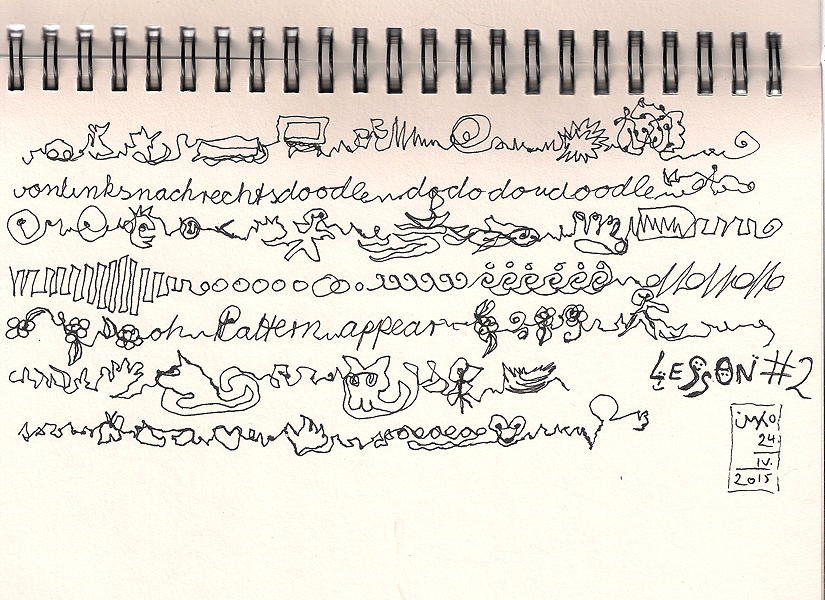 vonlinksnachrechtsdoodlendododoudoodle
oh Pattern appear
LESSON #2
imxo
24
IV.
2015